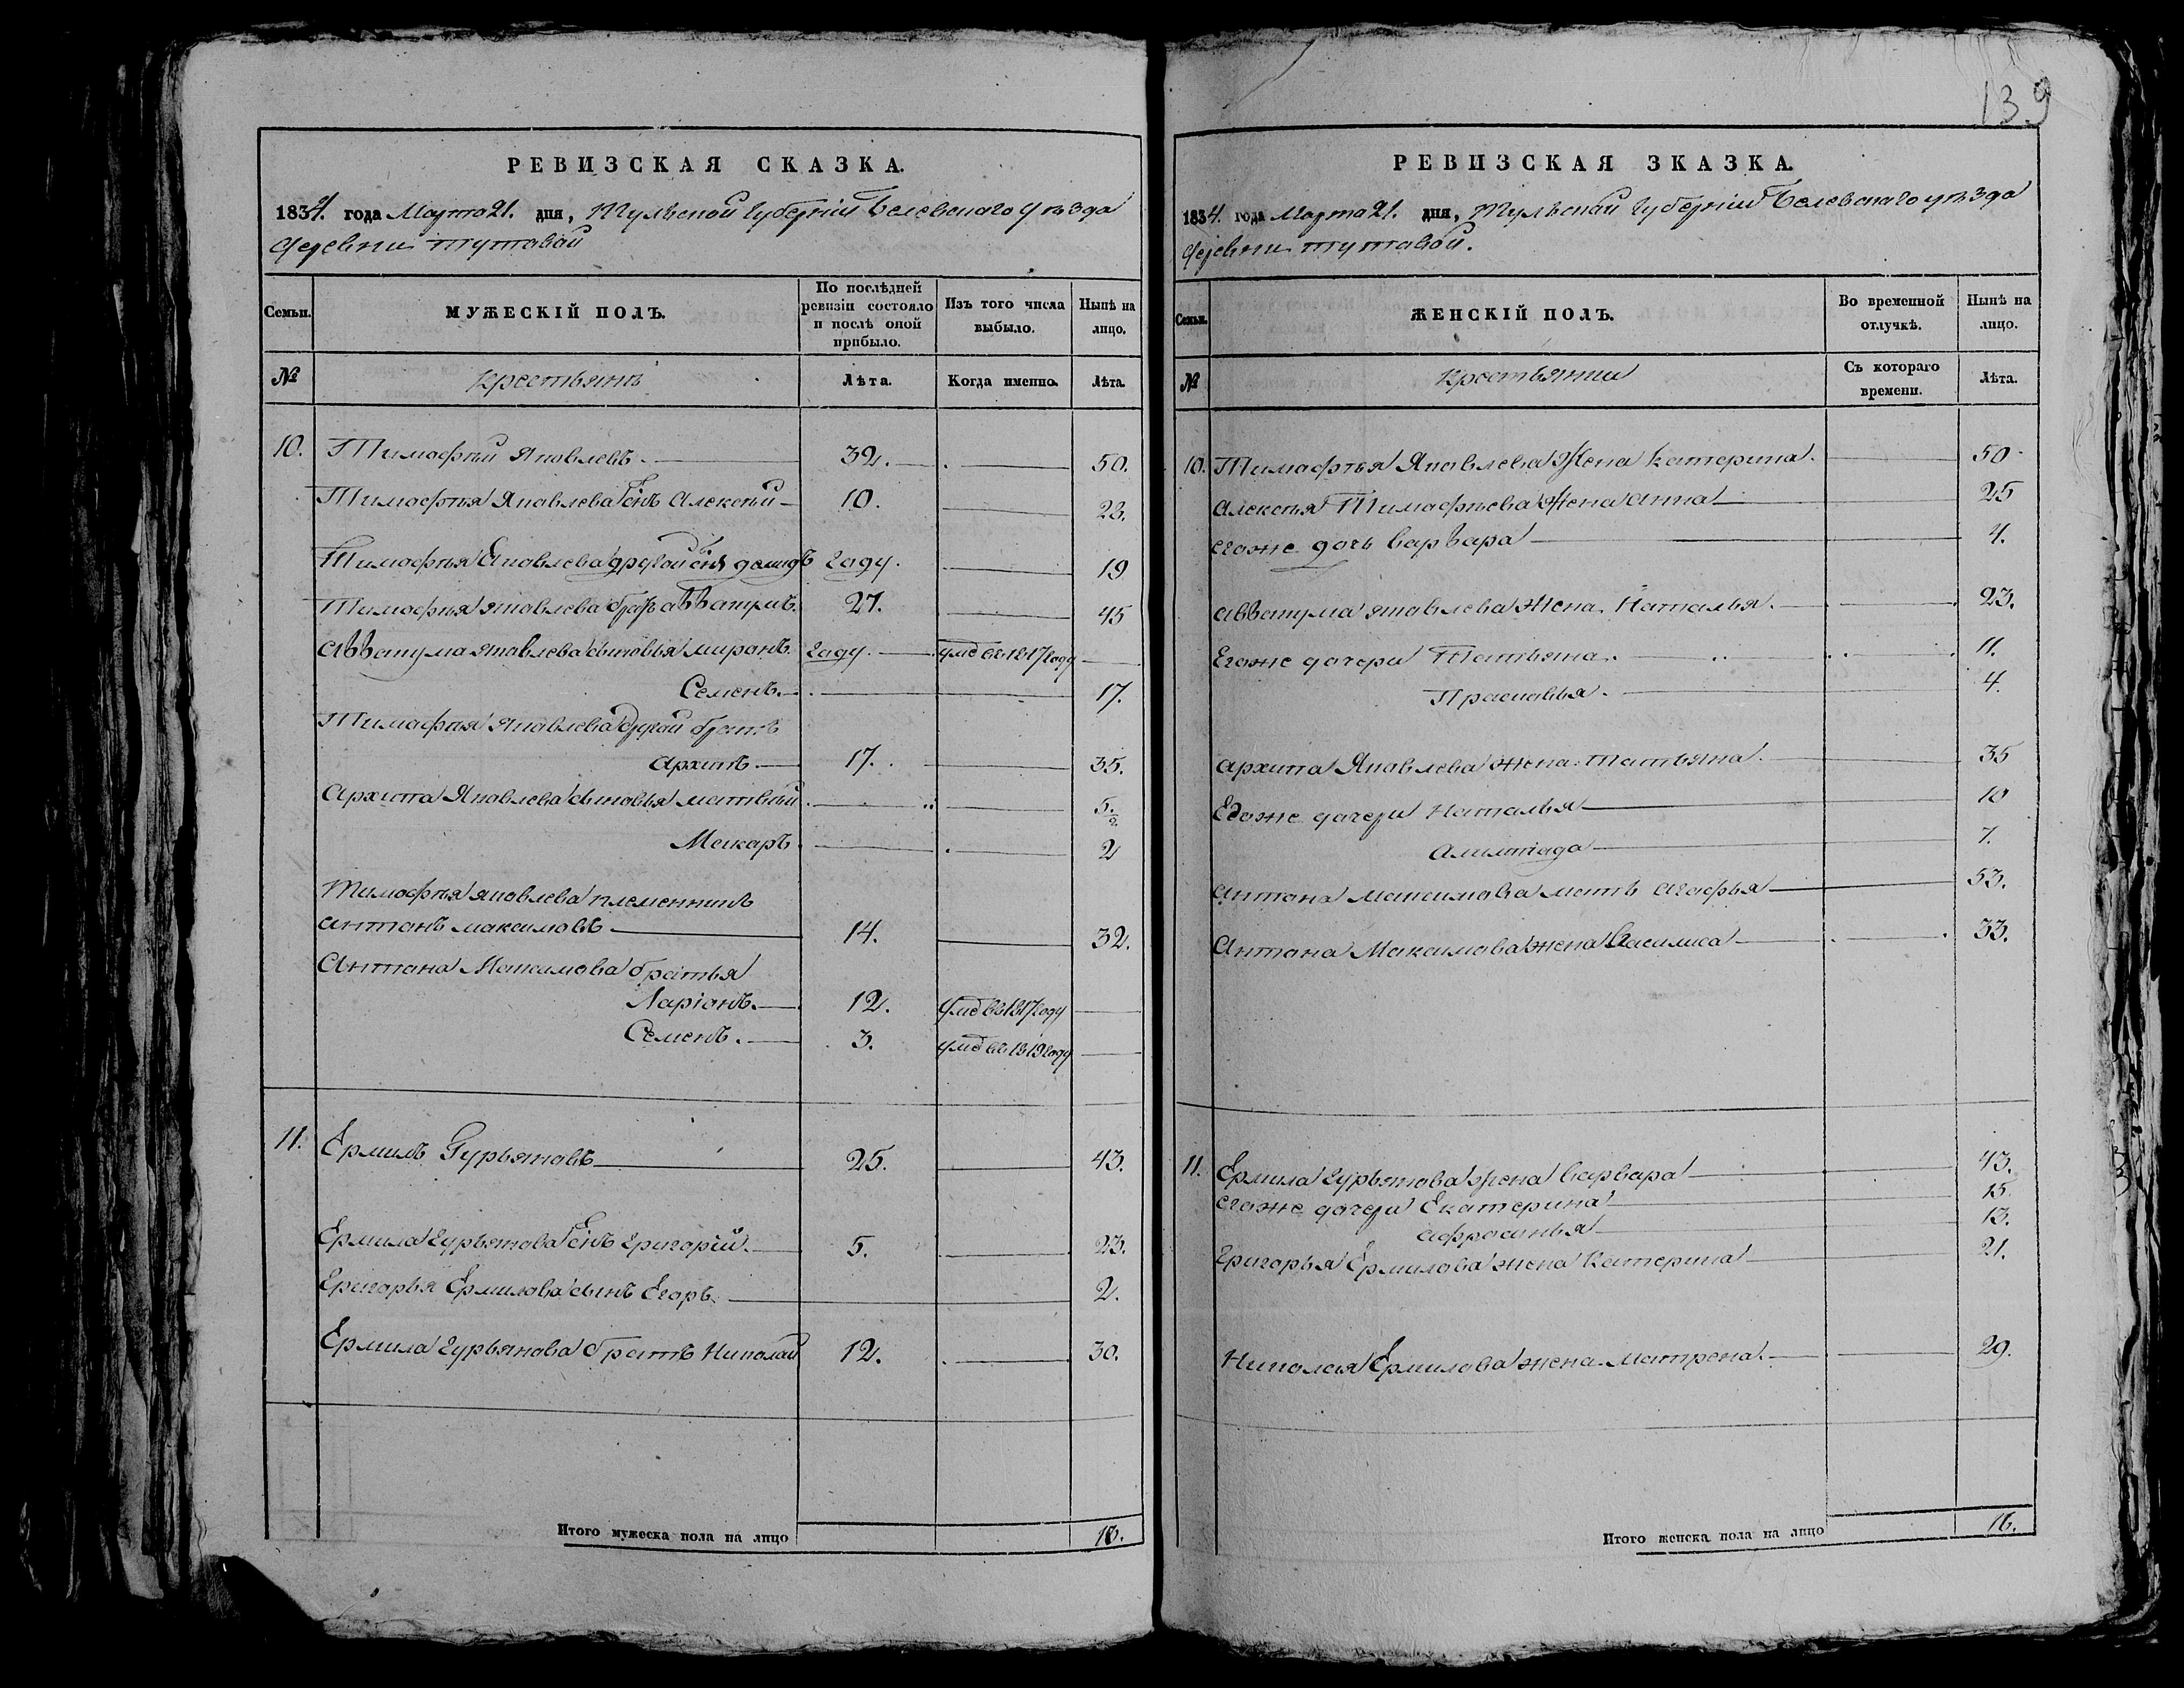 139
РЕВИЗСКАЯ СКАЗКА.
1834. года Марта 21. дня, Тульской Губернiи Белевскаго уѣзда
деревни
МУЖЕСКІЙ ПОЛЪ.
Семьи.
По послѣдней ревизіи состояло и послѣ оной прибыло.
Изъ того числа выбыло.
Нынѣ на лицо.
№
крестьянѣ
Лѣта.
Когда именно.
Лѣта.
10. Тимофѣй Яковлевъ 32. 50.
Тимофѣя Яковлева сынъ Алексѣй 10. 23.
Тимофѣя Яковлева другой сынъ году. 19
Тимофѣя Яковлева братъ 27. 45
Аввакума Яковлева сыновья миронъ году. умѣ въ 1817 году
Семенъ. 17.
Тимофѣя Яковлева другой братъ
Архипъ. 17. 35.
Архипа Яковлева сыновья матвѣй 5.½
Макаръ 2
Тимофѣя Яковлева племенникъ
антонъ максимовъ 14. 32.
Антона Максимова братья
Ларіонъ. 12. умѣ въ 1817 году
Семенъ. 3. умѣ въ 1819 году
11. Ермилъ Гурьяновъ 25. 43.
Ермила Гурьянова сынъ Григорій. 5. 23.
Григорья Ермилова сынъ Егоръ. 2.
Ермила Гурьянова братъ Николай 12. 30.
Итого мужеска пола на лицо
РЕВИЗСКАЯ ЗКАЗКА.
1834. года Марта 21. дня, Тульской Губернiи Белевскаго уѣзда
деревни
Семьи.
ЖЕНСКІЙ ПОЛЪ.
Во временной отлучкѣ.
Нынѣ на лицо.
№
крестьянки
Съ котораго времени.
Лѣта.
10. Тимофѣя Яковлева жена Катерина. 50
Алексѣя Тимофѣева жена анна 25
егоже дочь варвара 4.
аввакума яковлева жена Наталья. 23.
Егоже дочери Татьяна. 11.
Прасковья. 4.
архипа Яковлева жена татьяна 35
Егоже дочери Наталья 10
7.
антона максимова мать агафья 53.
Антона Максимова жена Василиса 33.
11. Ермила гурьянова жена варвара 43.
егоже дочери Екатерина 15.
афросинья 13.
Григорья Ермилова жена Катерина 21.
Николая Ермилова жена Матрена. 29.
Итого женска пола на лицо 16.